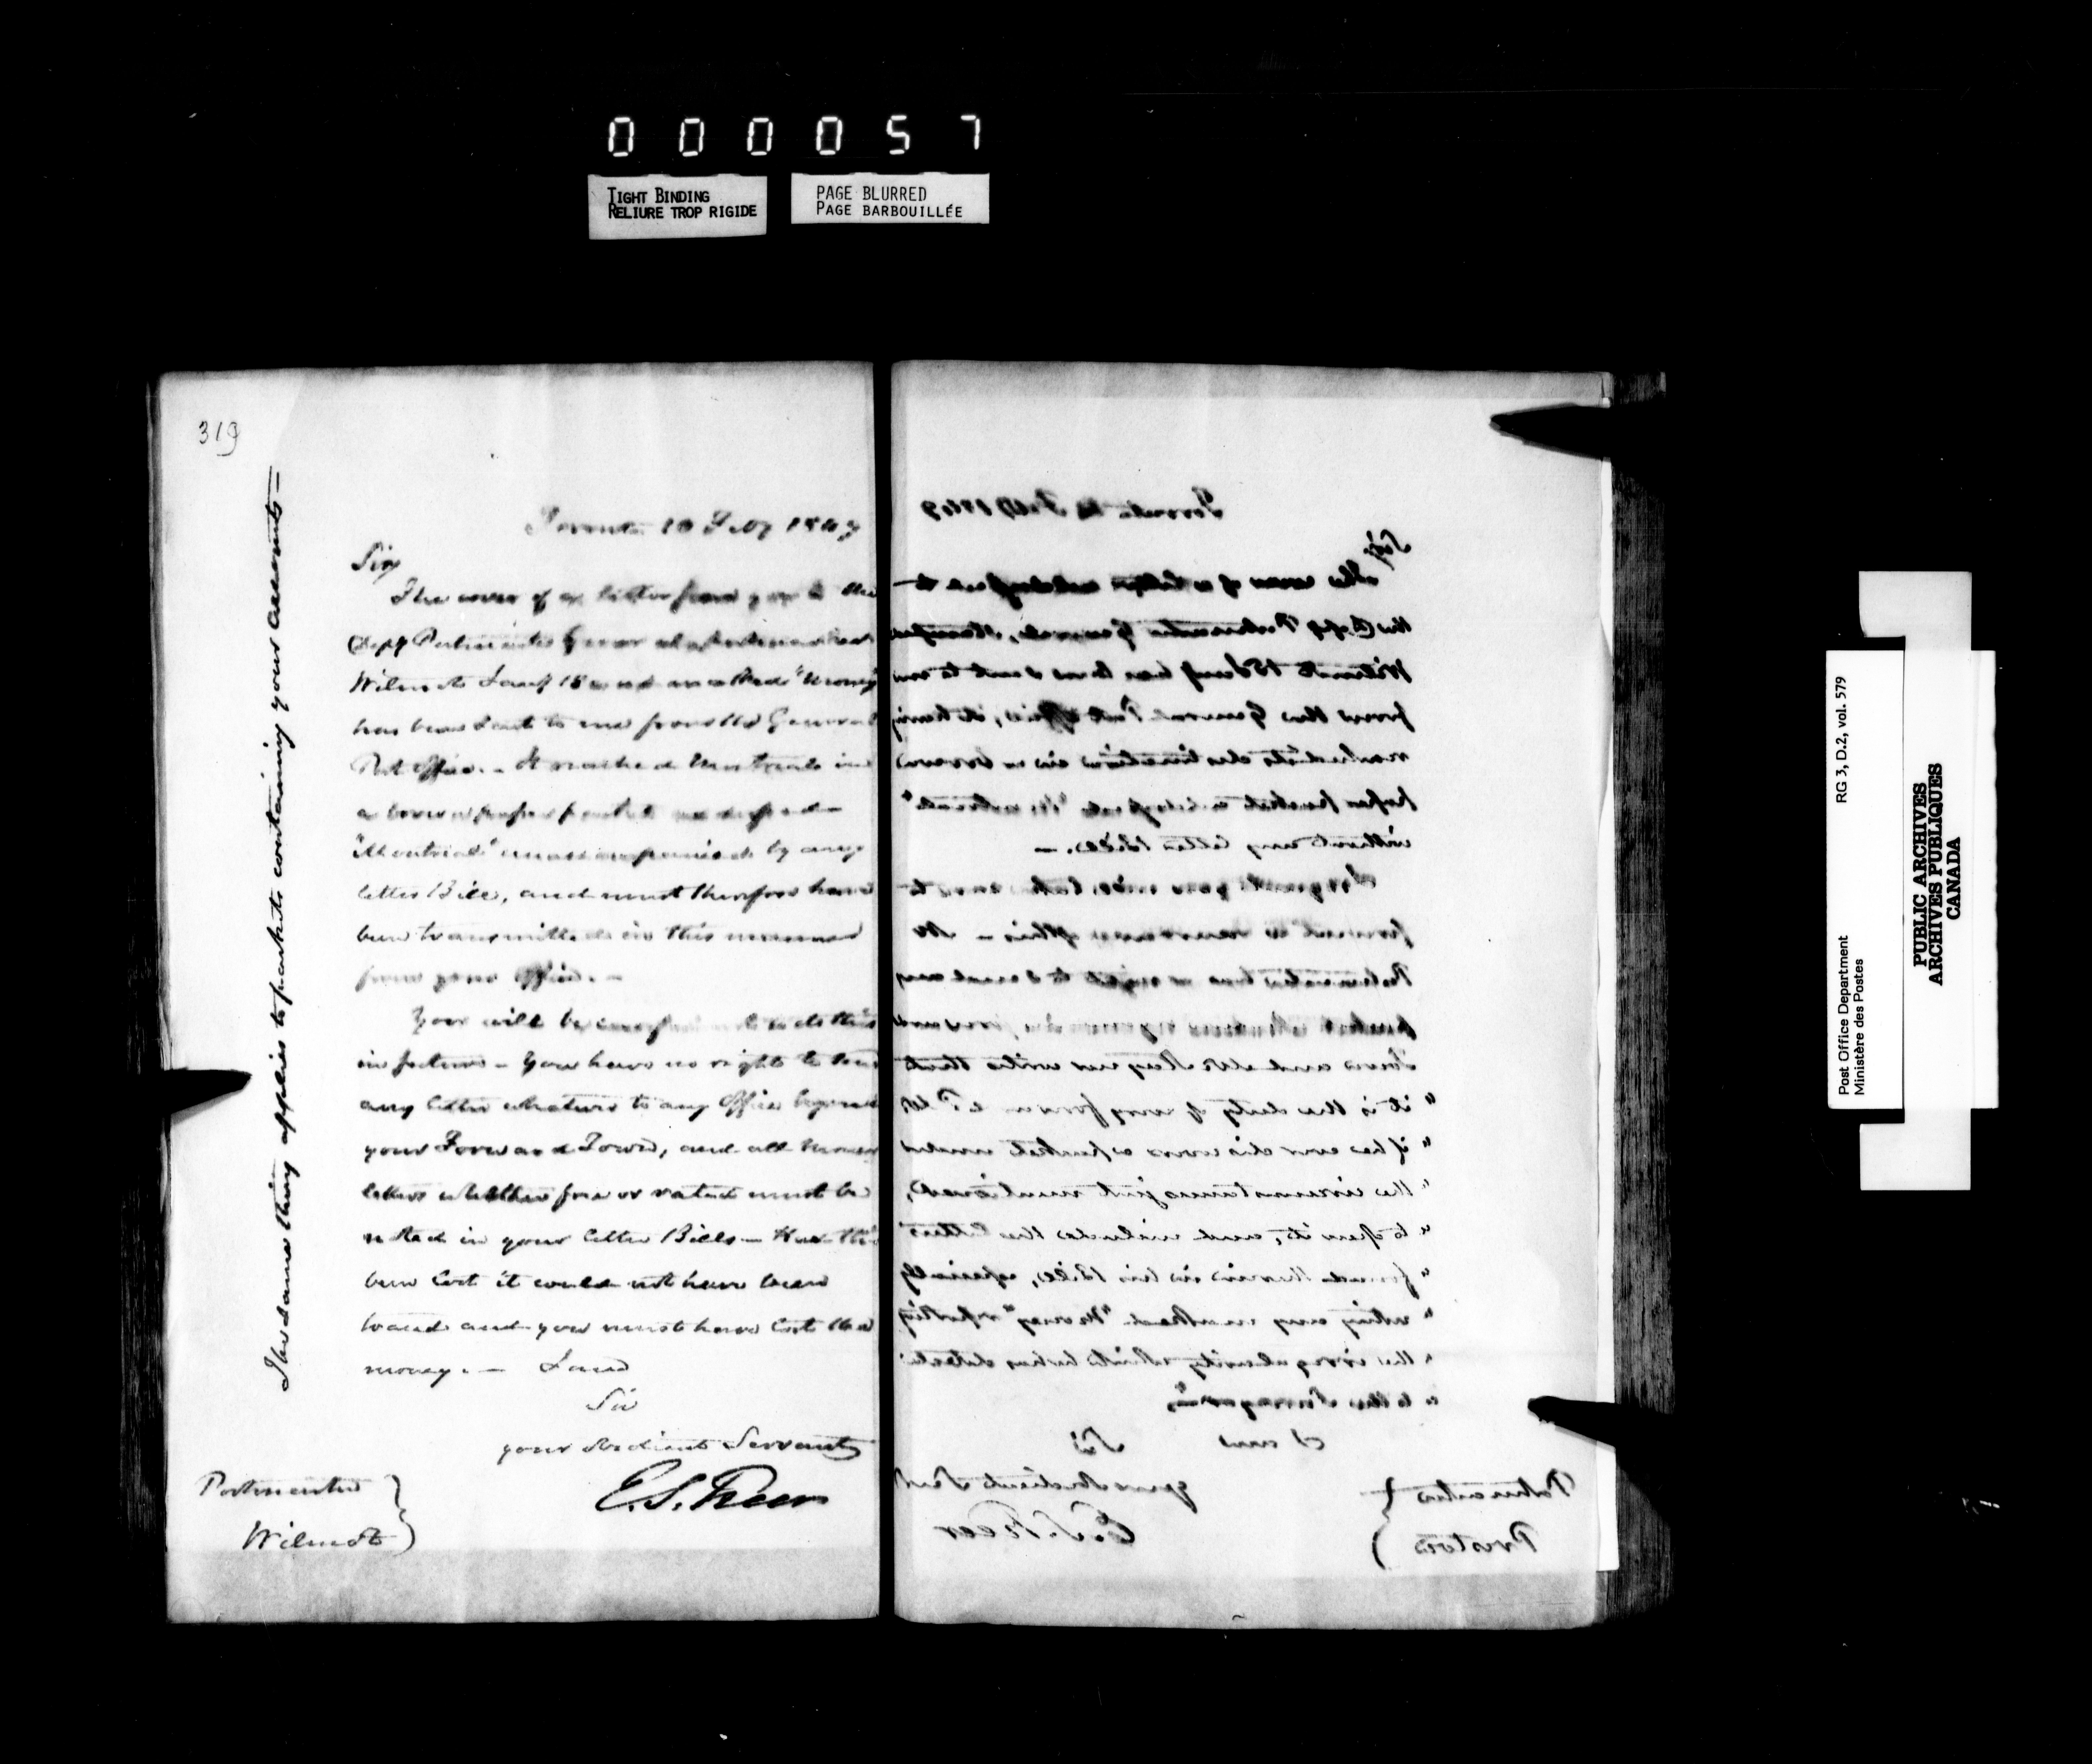 0 0 0 0 5 7
TIGHT BINDING
RELIURE TROP RIGIDE
PAGE BLURRED
PAGE BARBOUILLÉE
319
The same thing applies to packets containing your accounts —
Toronto 10 Feby 184
Sir
The cover of a letter from you to the
Depy Postmaster General
Wilmot Jany 18 and marked "Money
has been sent to me from the General
Post Office. — It reached Montreal in
a brown paper packet addressed
"Montreal" unaccompanied by any
letter Bill, and must therefore have
been transmitted in this manner
from your Office. —
You will be careful not to do this
in future — You have no right to send
any letter whatever to any Office beyond
your Forward Town, and all money
letters whether free or rated must be
noted in your letter Bills — Had this
been lost it could not have been
traced and you must have lost the
money. — I am
Sir
your obedient Servant
E. S. Freer
Postmaster
Wilmot
Toronto Feby
Sir,
The cover of a letter addressed to
the Depy Postmaster General,
Wilmot 18 Jany has been sent to me
from the General Post Office, it having
reached its destination in a brown
paper packet addressed "Montreal"
without any letter Bill. —
forward in this — No
Postmaster has a right to send any
packet
Town and
" it is the duty of every forward P. M
" if he ever discovers a packet under
" the circumstances just mentioned,
" to open it, and include the letters
" found therein in his Bill, specially
" noting any marked "Money" reporting
" the irregularity
" to the Surveyor"
I am Sir
your obedient Servt
E. S. Freer
Postmaster
Preston
Post Office Department
Ministère des Postes
RG 3, D.2, vol. 579
PUBLIC ARCHIVES
ARCHIVES PUBLIQUES
CANADA